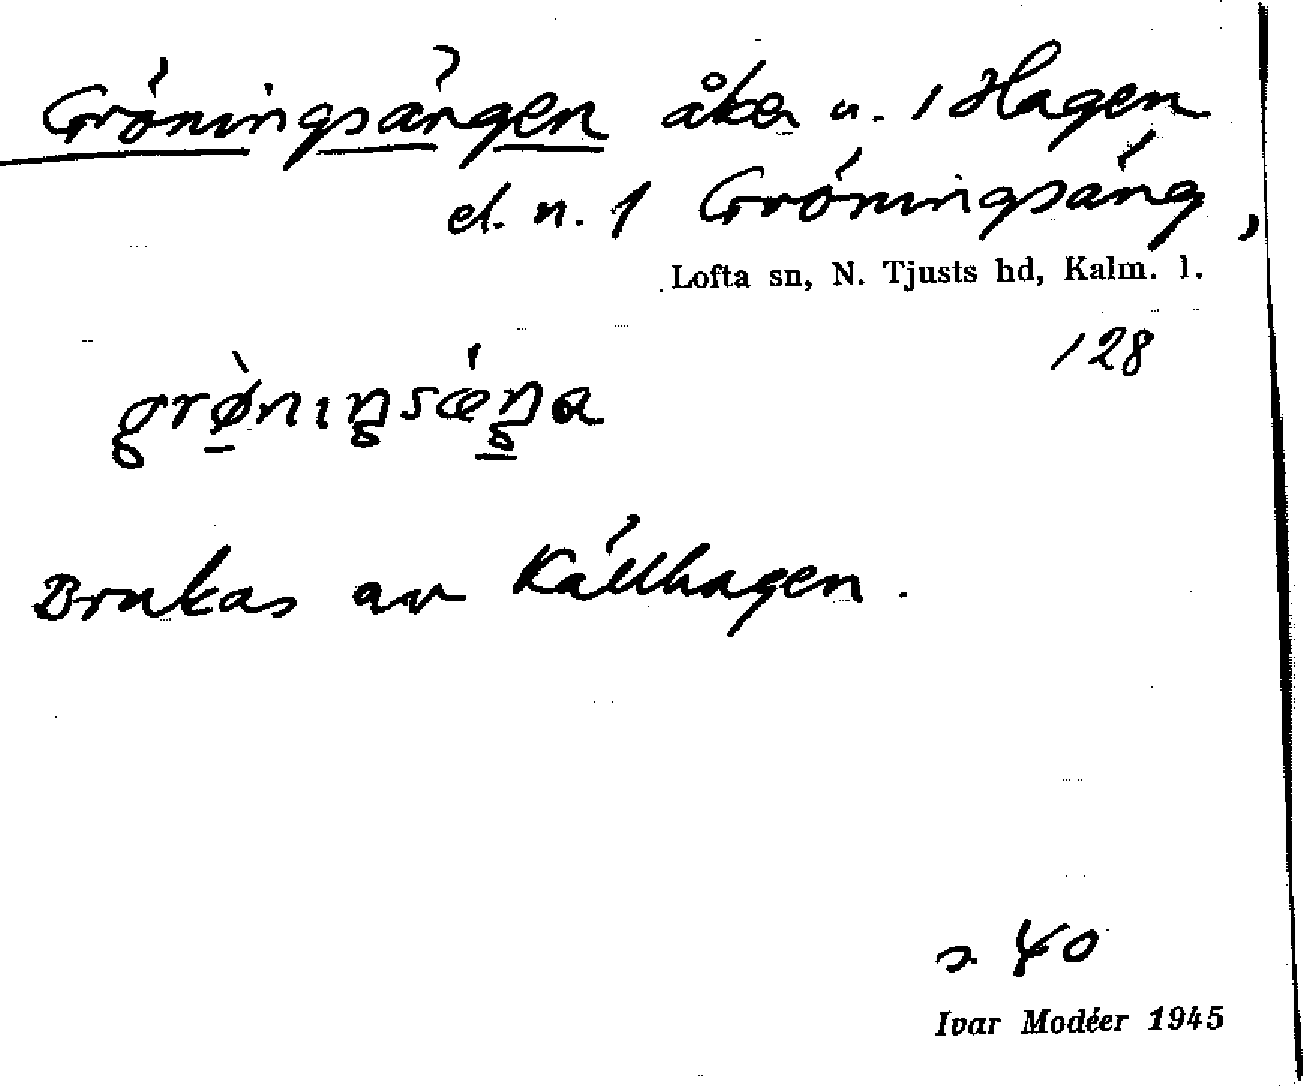 Gröningsängen åker u. 1 Hagen
el. n. 1 Gröningsäng,
Lofta sn, N. Tjusts hd, Kalm. l.
128
grø̀niŋsǽŋa
Brukas av Källhagen.
s. 40
Ivar Modéer 1945